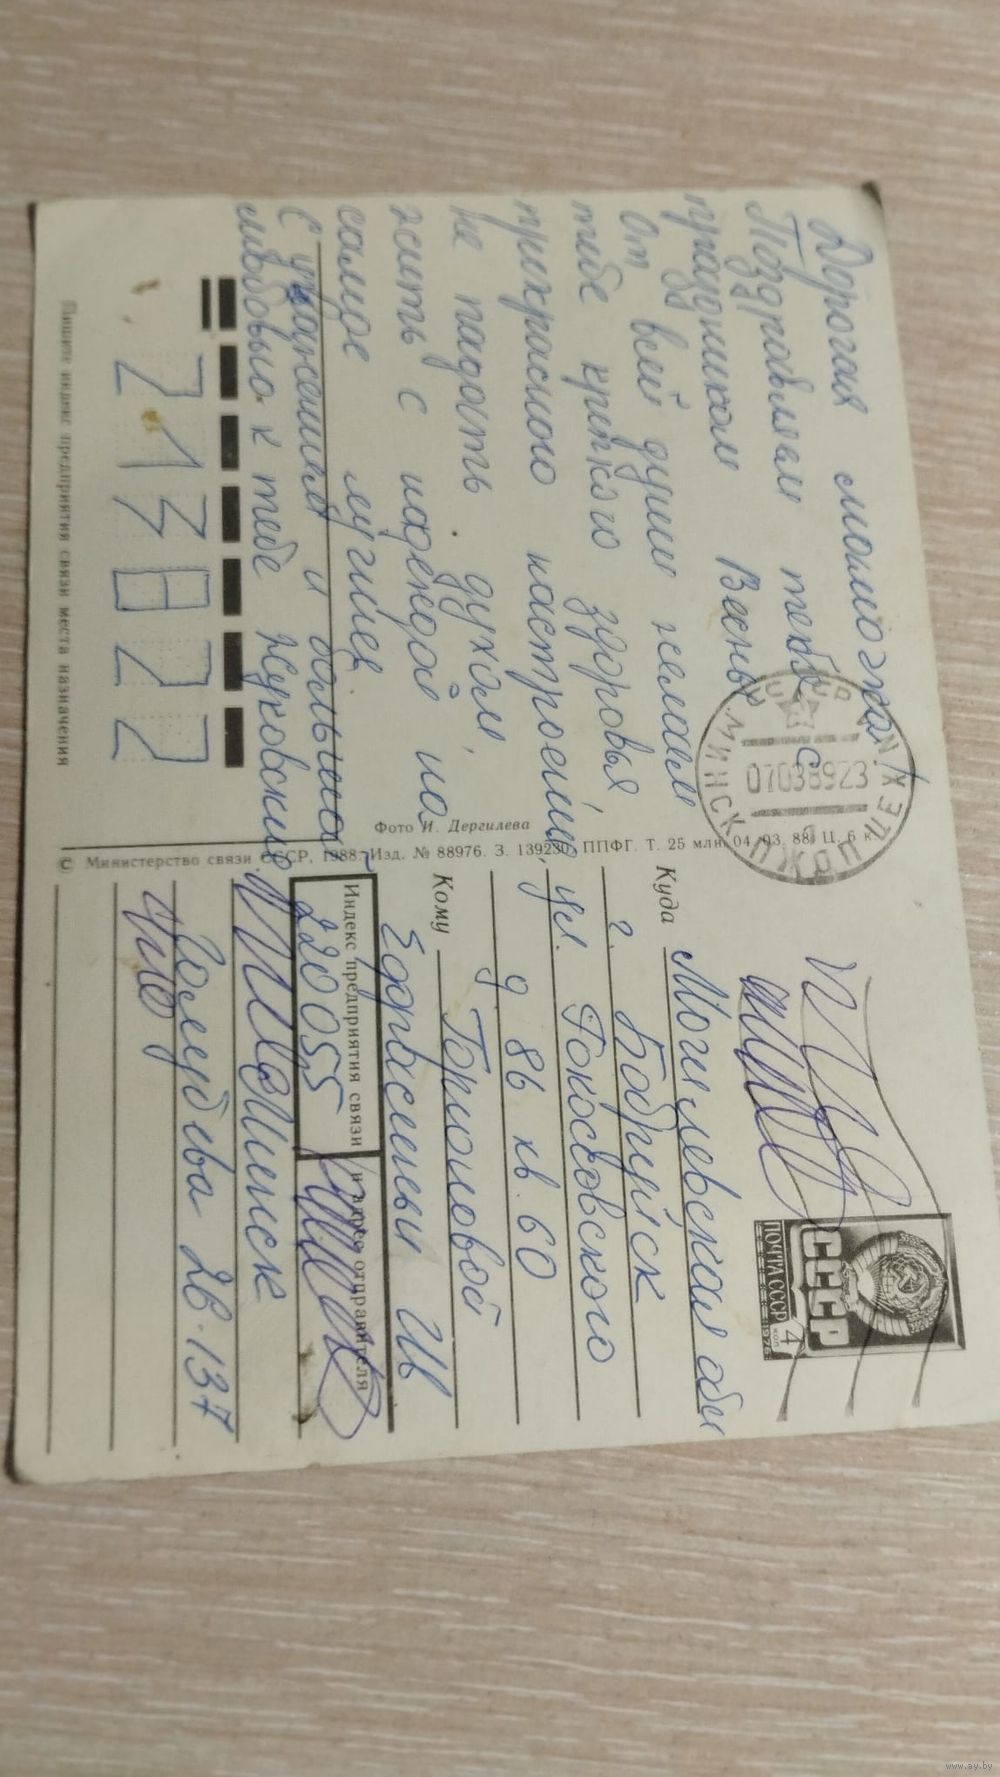 Дорогая мамочка!
Поздравляем тебя с
праздником Весны
От всей души желаем
тебе крепкого здоровья,
прекрасного настроения,
не падать духом,
жить с надеждой на
самое лучшее
С уважением и большой
любовью к тебе
213822
Пишите индекс предприятия связи места назначения
Фото И. Дергилева
© Министерство связи СССР, 1988. Изд. № 88976. З. 139230. ППФГ. Т. 25 млн. 04.03.88. Ц. 6 к.
МИНСК
СССР
070389 23
ПОЧТА СССР
4 коп
1976
СССР
Куда Могилевская обл
г. Бобруйск
ул. Рокоссовского
д 86 кв. 60
Кому Гормоловой
Индекс предприятия связи и адрес отправителя
220055
Минск
Голубева 26-137
www.ay.by